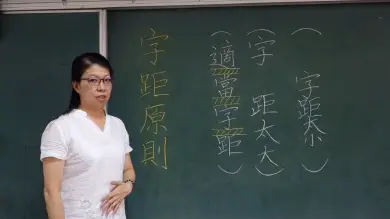 字距原則
(適當字距)
(字 距太大)
(字距太小)